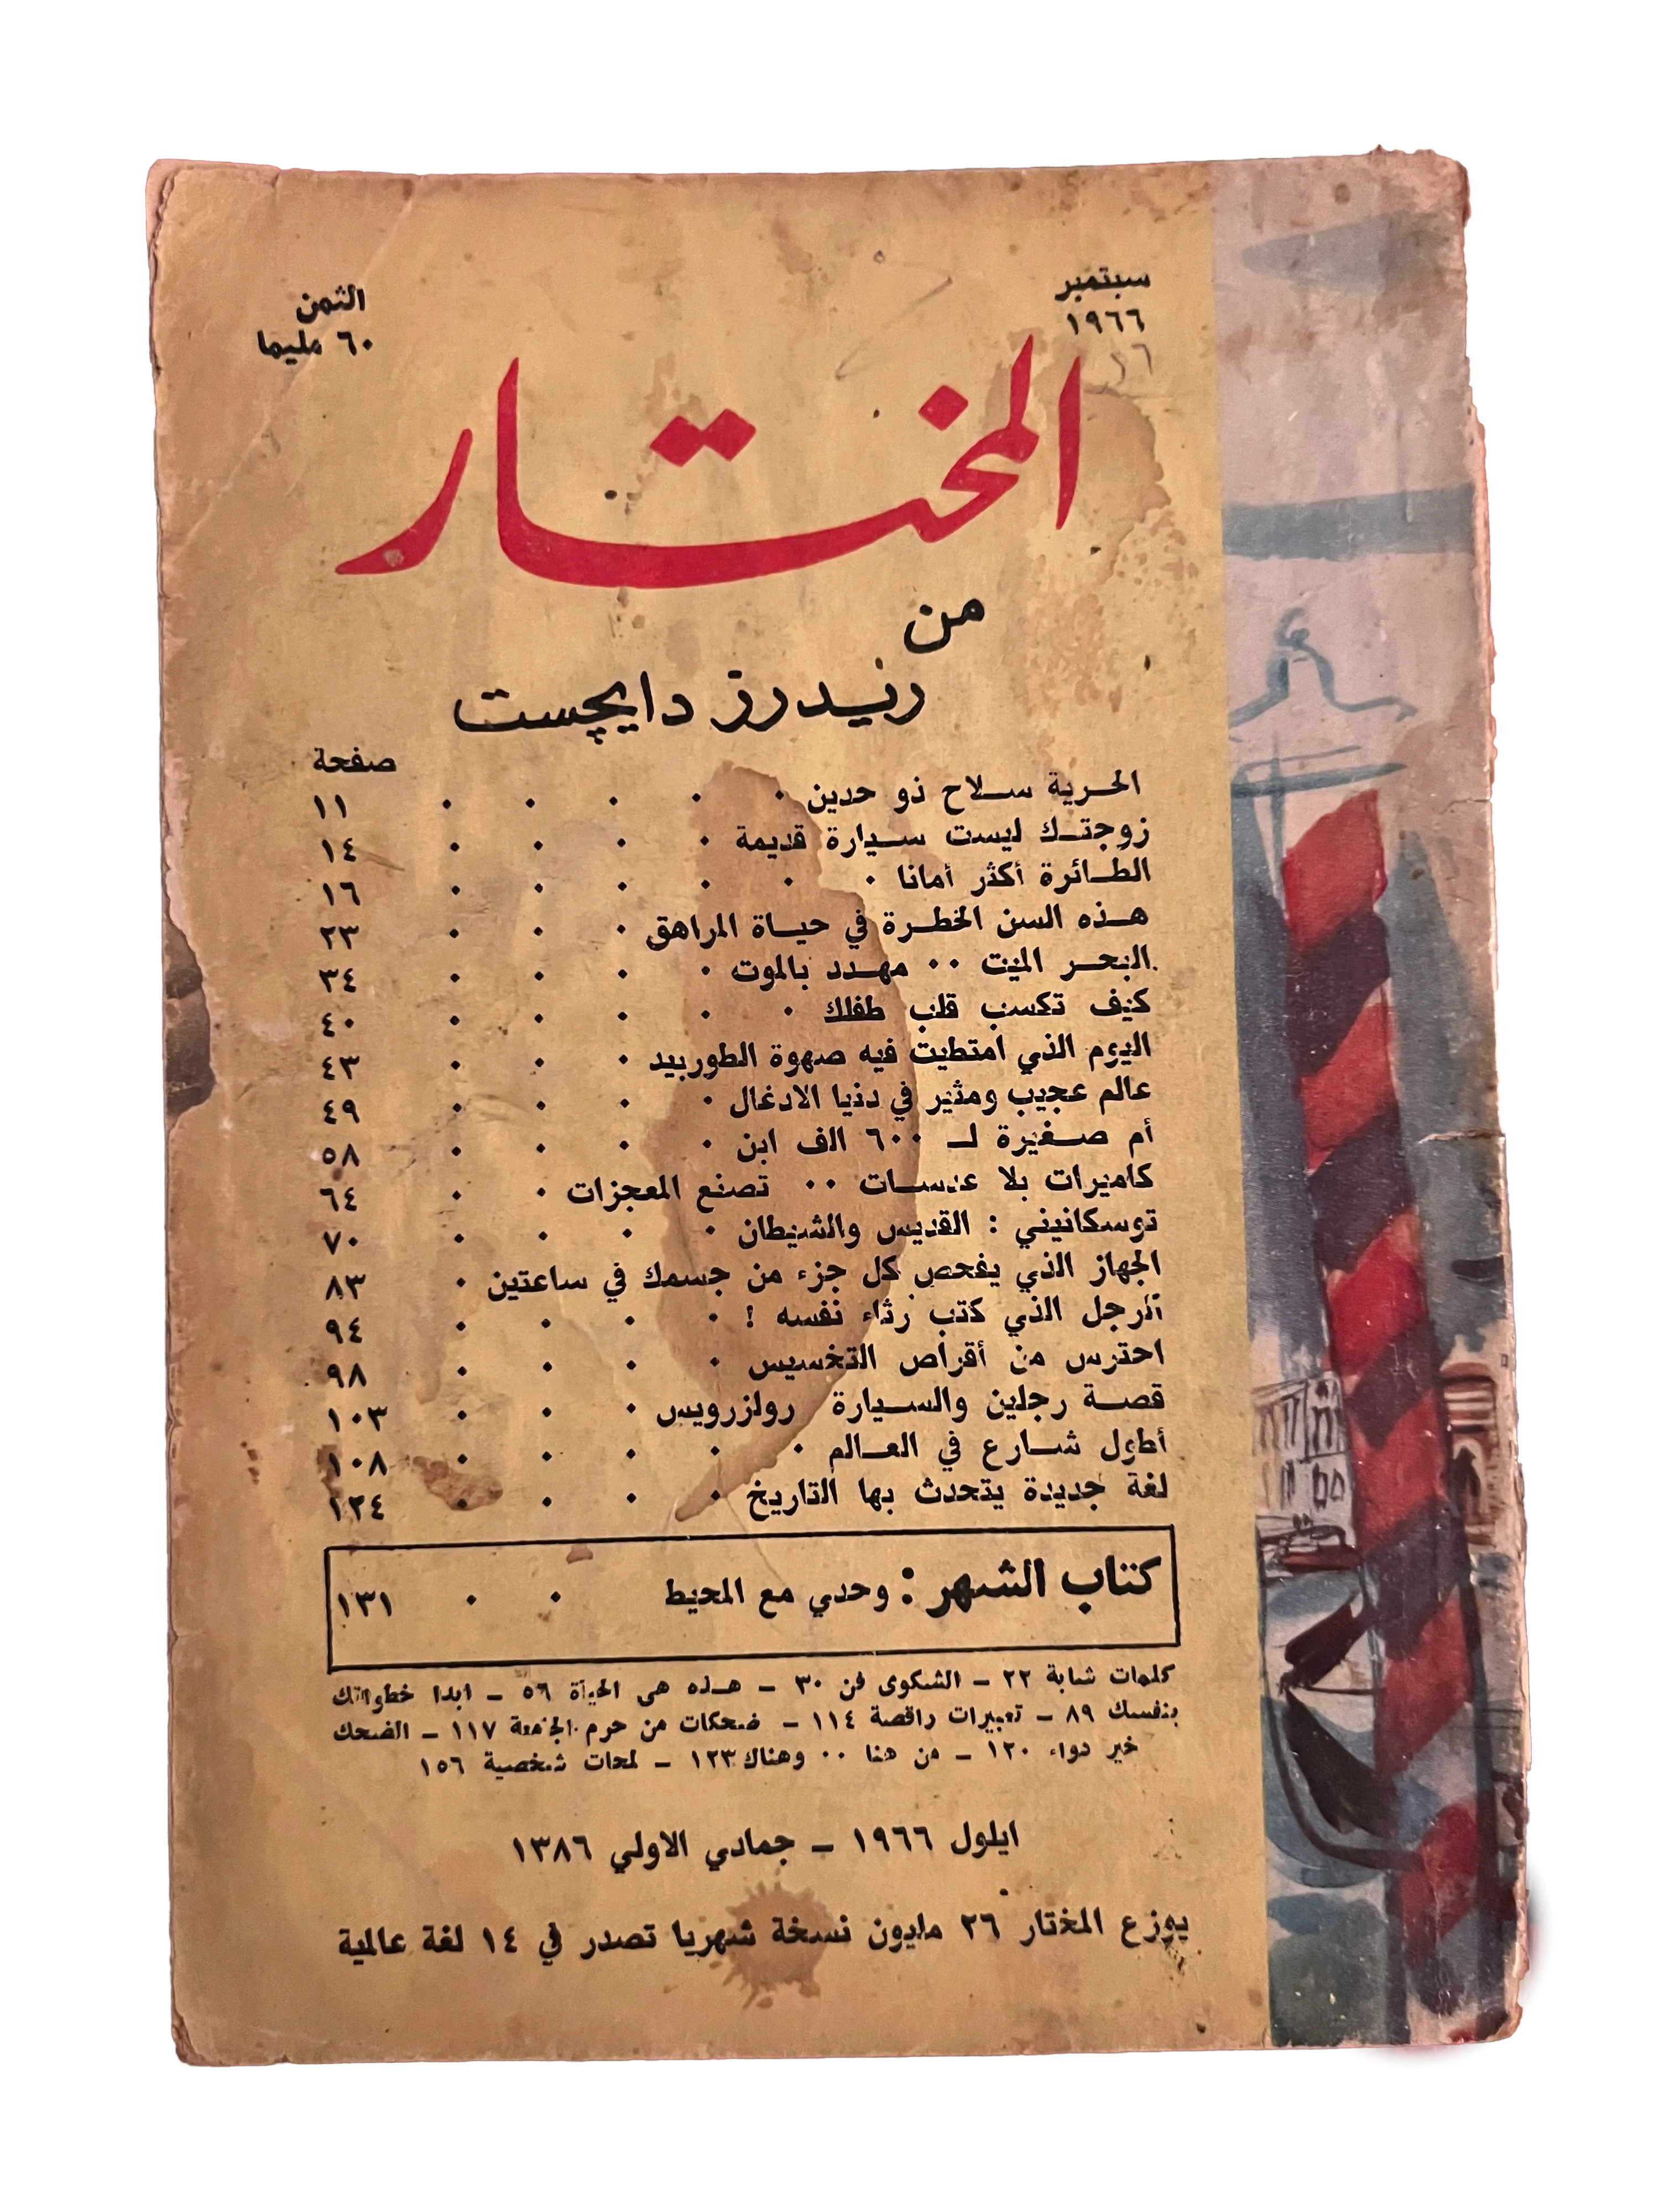 سبتمبر
١٩٦٦
الثمن
٦٠ مليما
المختار
من
ريدرز دايچست
صفحة
الحرية سلاح ذو حدين ١١
زوجتك ليست سيارة قديمة ١٤
الطائرة أكثر أمانا ١٦
هذه السن الخطرة في حياة المراهق ٢٣
البحر الميت ٠٠ مهدد بالموت ٣٤
كيف تكسب قلب طفلك ٤٠
اليوم الذي امتطيت فيه صهوة الطوربيد ٤٣
عالم عجيب ومثير في دنيا الادغال ٤٩
أم صغيرة لـ ٦٠٠ الف ابن ٥٨
كاميرات بلا عدسات ٠٠ تصنع المعجزات ٦٤
توسكانيني : القديس والشيطان ٧٠
الجهاز الذي يفحص كل جزء من جسمك في ساعتين ٨٣
الرجل الذي كتب رثاء نفسه ! ٩٤
احترس من أقراص التخسيس ٩٨
قصة رجلين والسيارة رولزرويس ١٠٣
أطول شارع في العالم ١٠٨
لغة جديدة يتحدث بها التاريخ ١٢٤
كتاب الشهر : وحدي مع المحيط ١٣١
كلمات شابة ٢٢ – الشكوى فن ٣٠ – هذه هى الحياة ٥٦ – ابدا خطواتك
بنفسك ٨٩ – تعبيرات راقصة ١١٤ – ضحكات من حرم الجامعة ١١٧ – الضحك
خير دواء ١٢٠ – من هنا ٠٠ وهناك ١٢٣ – لمحات شخصية ١٥٦
ايلول ١٩٦٦ – جمادي الاولي ١٣٨٦
يوزع المختار ٢٦ مليون نسخة شهريا تصدر في ١٤ لغة عالمية